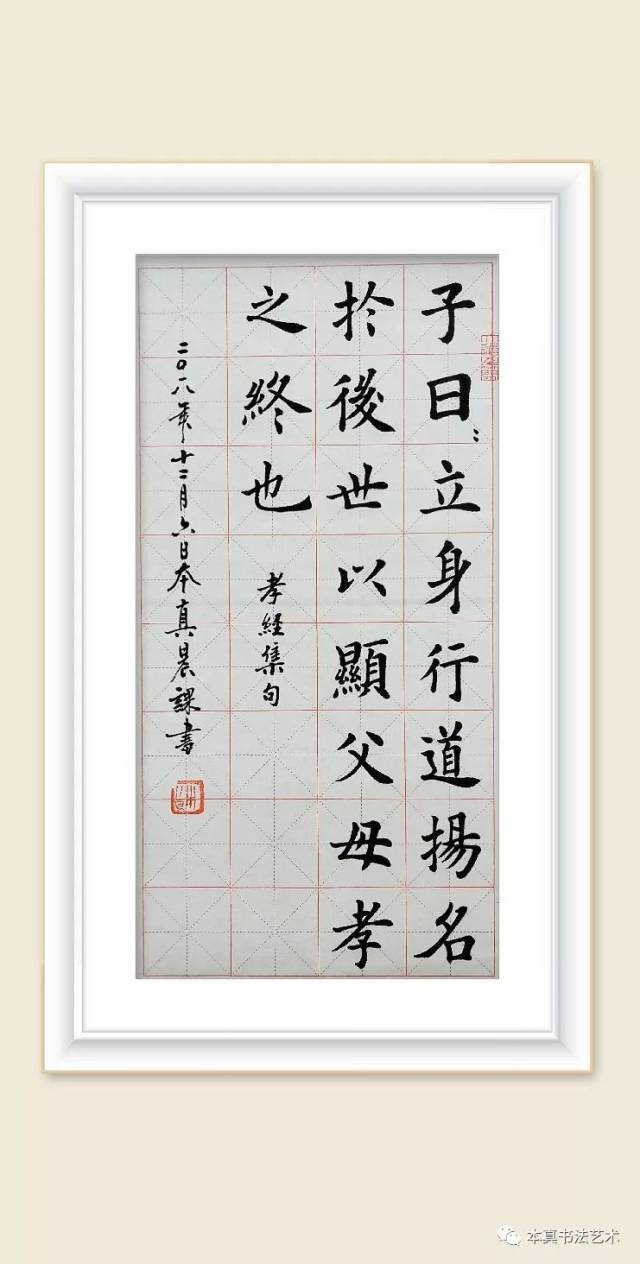 子曰：立身行道揚名
於後世以顯父母孝
之終也
孝經集句
二〇一八年十二月六日本真晨課書
本真书法艺术